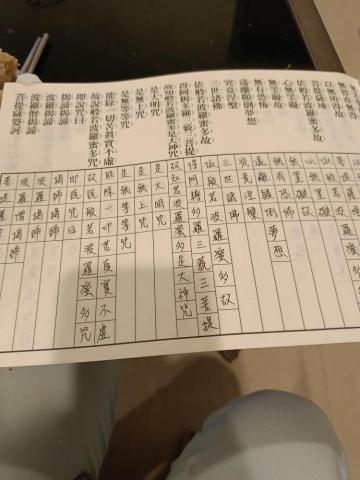 以無所得故
菩提薩埵
依般若波羅蜜多故
心無罣礙
無罣礙故
無有恐怖
遠離顛倒夢想
究竟涅槃
三世諸佛
依般若波羅蜜多故
得阿耨多羅三藐三菩提
故知般若波羅蜜多是大神咒
是大明咒
是無上咒
是無等等咒
能除一切苦真實不虛
故說般若波羅蜜多咒
即說咒曰
揭諦揭諦
波羅揭諦
波羅僧揭諦
菩提薩婆訶
夢想
三世諸佛
依般若波羅蜜多故
得阿耨多羅三藐三菩提
故知般若波羅蜜多是大神咒
是大明咒
是無上咒
是無等等咒
能除一切苦真實不虛
故說般若波羅蜜多咒
即說咒曰
揭諦揭諦
波羅揭諦
波羅僧揭諦